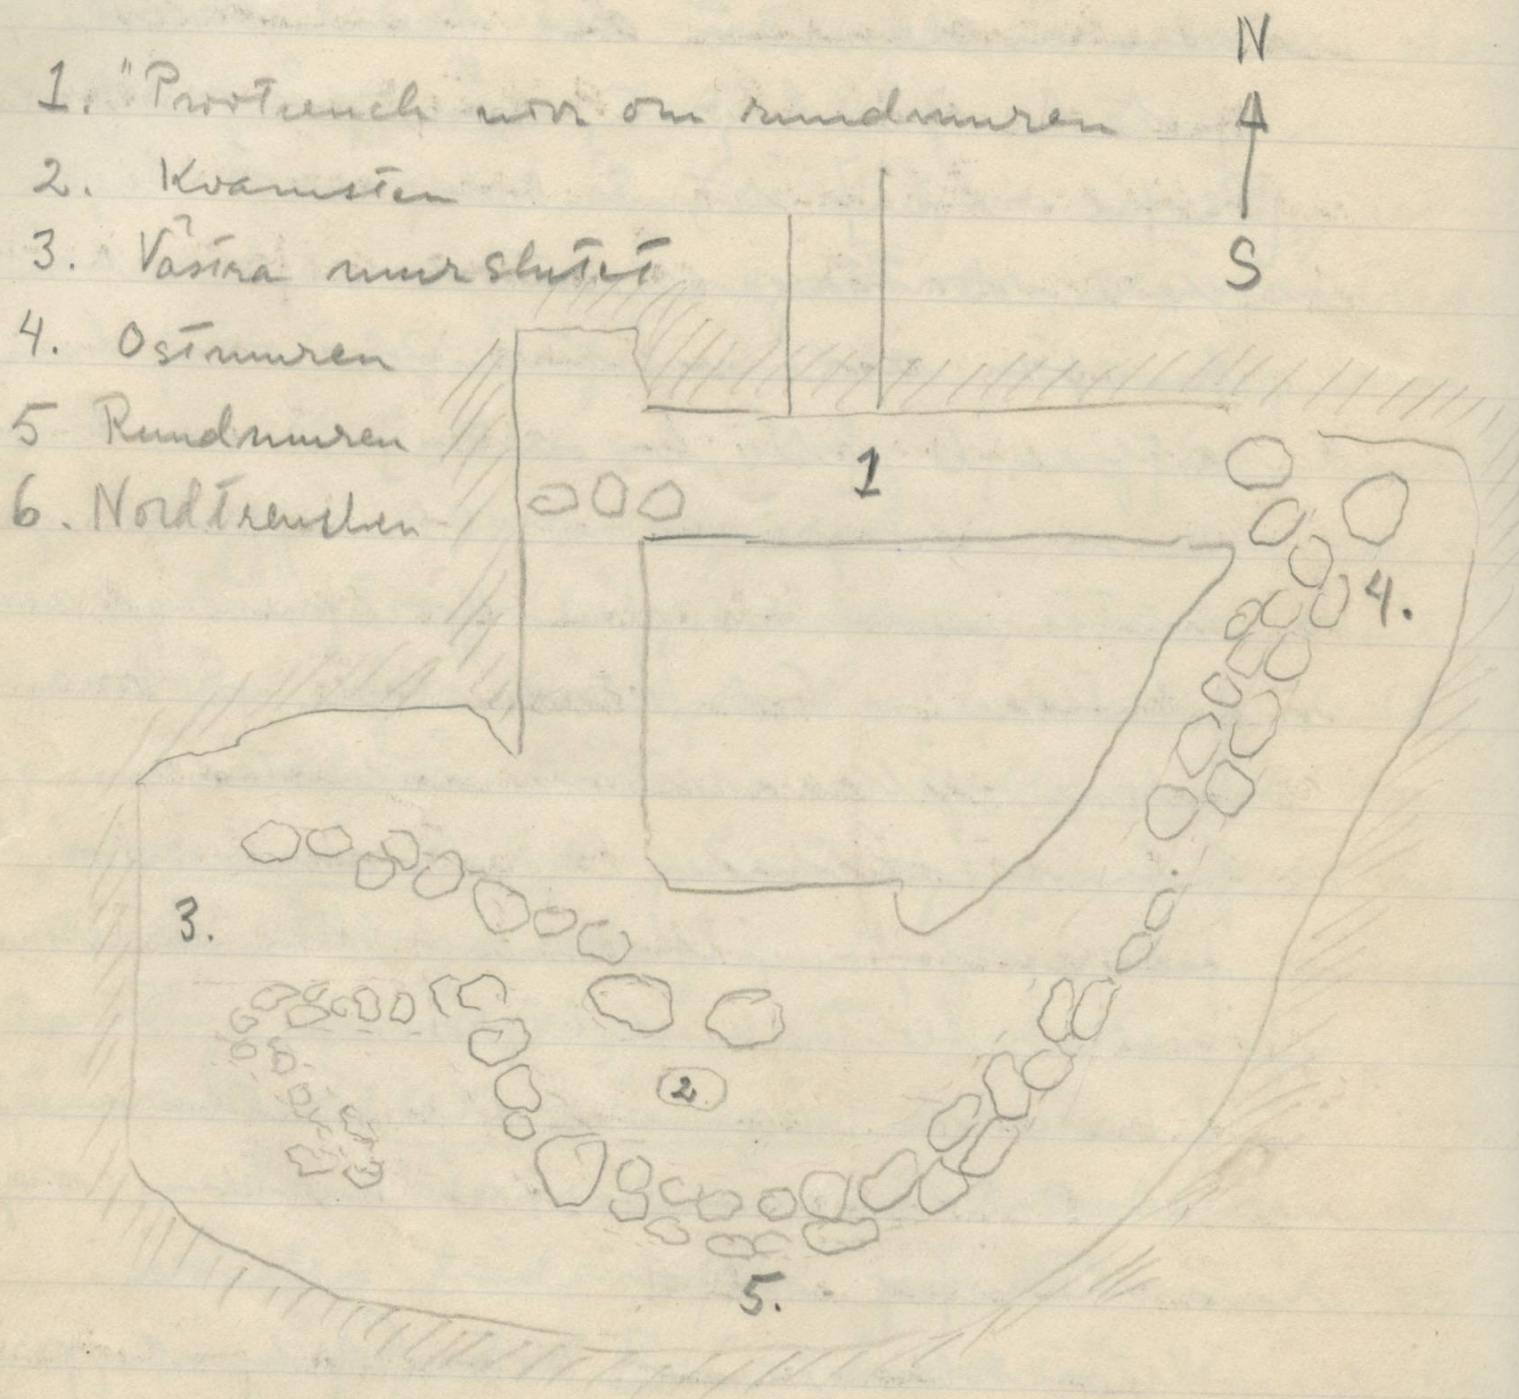 N
1. "Provtrench norr om rundmuren
2. Kvarnsten
3. Västra murslutet
S
4. Ostmuren
5 Rundmuren
6. Nordtrenchen
1
4.
3.
2
5.